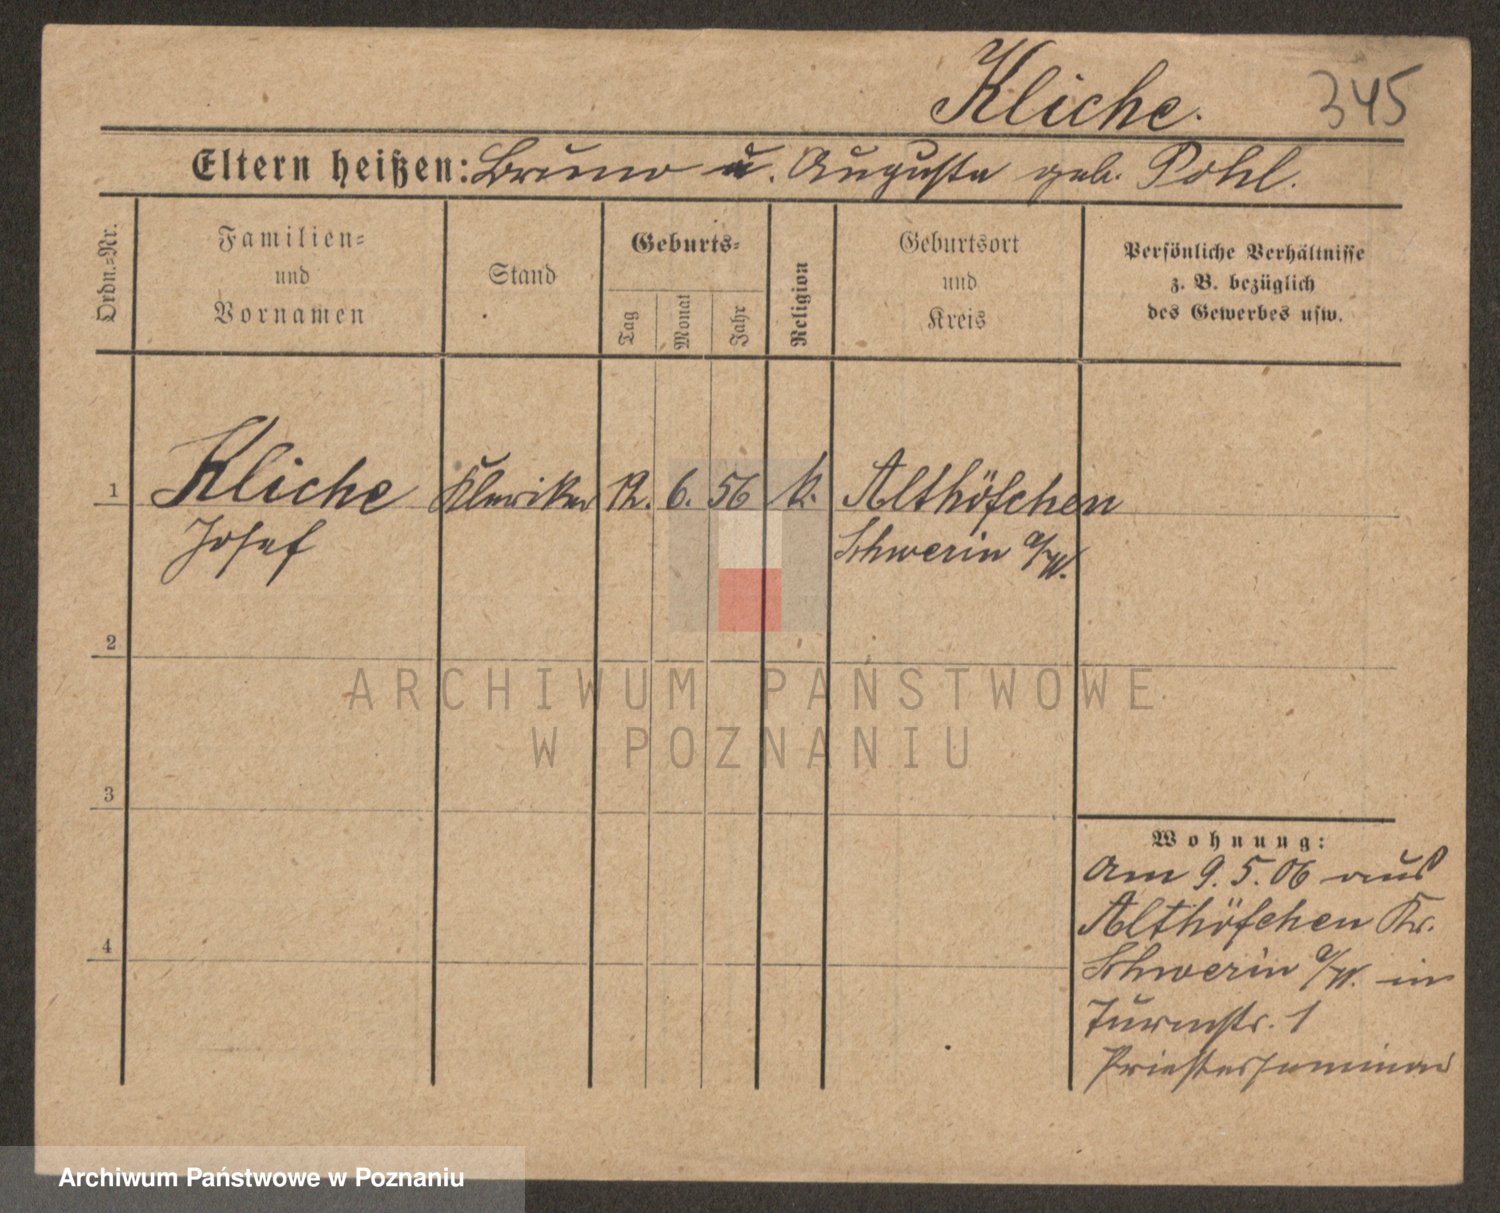 Kliche.
345
Eltern heißen: Bruno u. Auguste geb. Pohl.
Ordn.-Nr.
Familien-
und
Vornamen
Stand
Geburts-
Tag
Monat
Jahr
Religion
Geburtsort
und
Kreis
Persönliche Verhältnisse
z. B. bezüglich
des Gewerbes usw.
1 Kliche Kleriker 12. 6. 56 k. Althöfchen
Josef Schwerin a/W.
2
3
4
Wohnung:
Am 9. 5. 06 aus
Althöfchen Kr.
Schwerin a/W. in
Turmstr. 1
Priesterseminar
ARCHIWUM PAŃSTWOWE
W POZNANIU
Archiwum Państwowe w Poznaniu